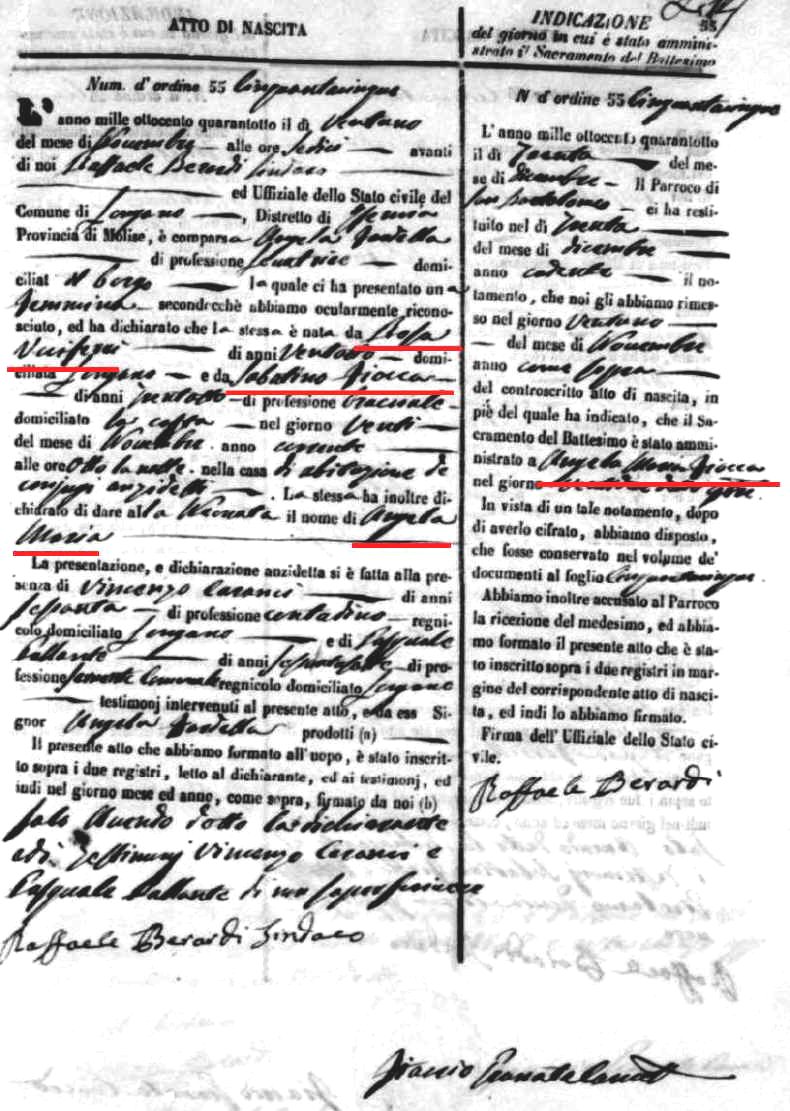 ATTO DI NASCITA
Num. d'ordine 55 Cinquantacinque
L' anno mille ottocento quarantotto il dì Ventuno
del mese di Novembre alle ore sedici avanti
di noi Raffaele Berardi Sindaco
ed Uffiziale dello Stato civile del
Comune di Longano , Distretto di Isernia
Provincia di Molise, è comparsa Angela
di professione domi-
ciliat il borgo la quale ci ha presentato una
femmina secondocchè abbiamo ocularmente ricono-
sciuto, ed ha dichiarato che la stessa è nata da Rosa
di anni Ventotto domi-
ciliata Longano e da Sabatino Fiocca
di anni trentotto di professione bracciale
domiciliato nel giorno Venti
del mese di Novembre anno corrente
alle ore Otto la notte nella casa di abitazione de
conjugi anzidetti . La stessa ha inoltre di-
chiarato di dare alla Neonata il nome di Angela
Maria
La presentazione, e dichiarazione anzidetta si è fatta alla pre-
senza di Vincenzo di anni
sessanta di professione contadino regni-
colo domiciliato Longano e di Pasquale
Vallante di anni di pro-
fessione regnicolo domiciliato Longano
testimonj intervenuti al presente atto, e da essa Si-
gnor Angela prodotti (a)
Il presente atto che abbiamo formato all'uopo, è stato inscrit-
to sopra i due registri, letto al dichiarante, ed ai testimonj, ed
indi nel giorno mese ed anno, come sopra, firmato da noi (b)
solo Avendo detto la dichiarante
ed i Testimonj Vincenzo e
Pasquale Vallante di non saper scrivere
Raffaele Berardi Sindaco
INDICAZIONE
55
del giorno in cui è stato ammini-
strato il Sacramento del Battesimo
N d'ordine 55 Cinquantacinque
L'anno mille ottocento quarantotto
il dì Trenta del me-
se di dicembre Il Parroco di
San Bartolomeo ci ha resti-
tuito nel dì trenta
del mese di dicembre
anno cadente il no-
tamento, che noi gli abbiamo rimes-
so nel giorno Ventuno
del mese di Novembre
anno come sopra
del controscritto atto di nascita, in
piè del quale ha indicato, che il Sa-
cramento del Battesimo è stato ammi-
nistrato a Angela Maria Fiocca
nel giorno
In vista di un tale notamento, dopo
di averlo cifrato, abbiamo disposto,
che fosse conservato nel volume de'
documenti al foglio Cinquantacinque
Abbiamo inoltre accusato al Parroco
la ricezione del medesimo, ed abbia-
mo formato il presente atto che è sta-
to inscritto sopra i due registri in mar-
gine del corrispondente atto di nasci-
ta, ed indi lo abbiamo firmato.
Firma dell' Uffiziale dello Stato ci-
vile.
Raffaele Berardi